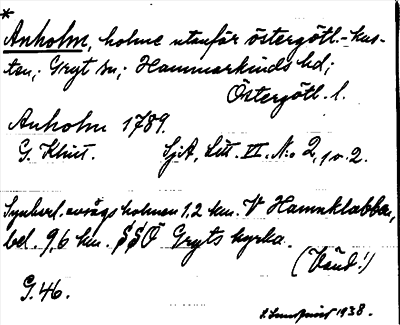 *
Anholm, holme utanför östergötl.-kus-
ten; Gryt sn; Hammarkinds hd;
Östergötl. l.
Anholm 1789.
G. Klint. SjA. Litt. VI. No 2, 1 o. 2.
Synberl. avsågs holmen 1,2 km. V Hamnklabben,
bel. 9,6 km. SSÖ Gryts kyrka.
(Vänd!)
G. 46.
1938.